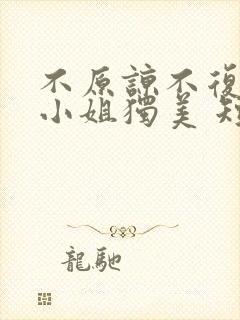 不原諒不復
小姐獨美 短
龍馳